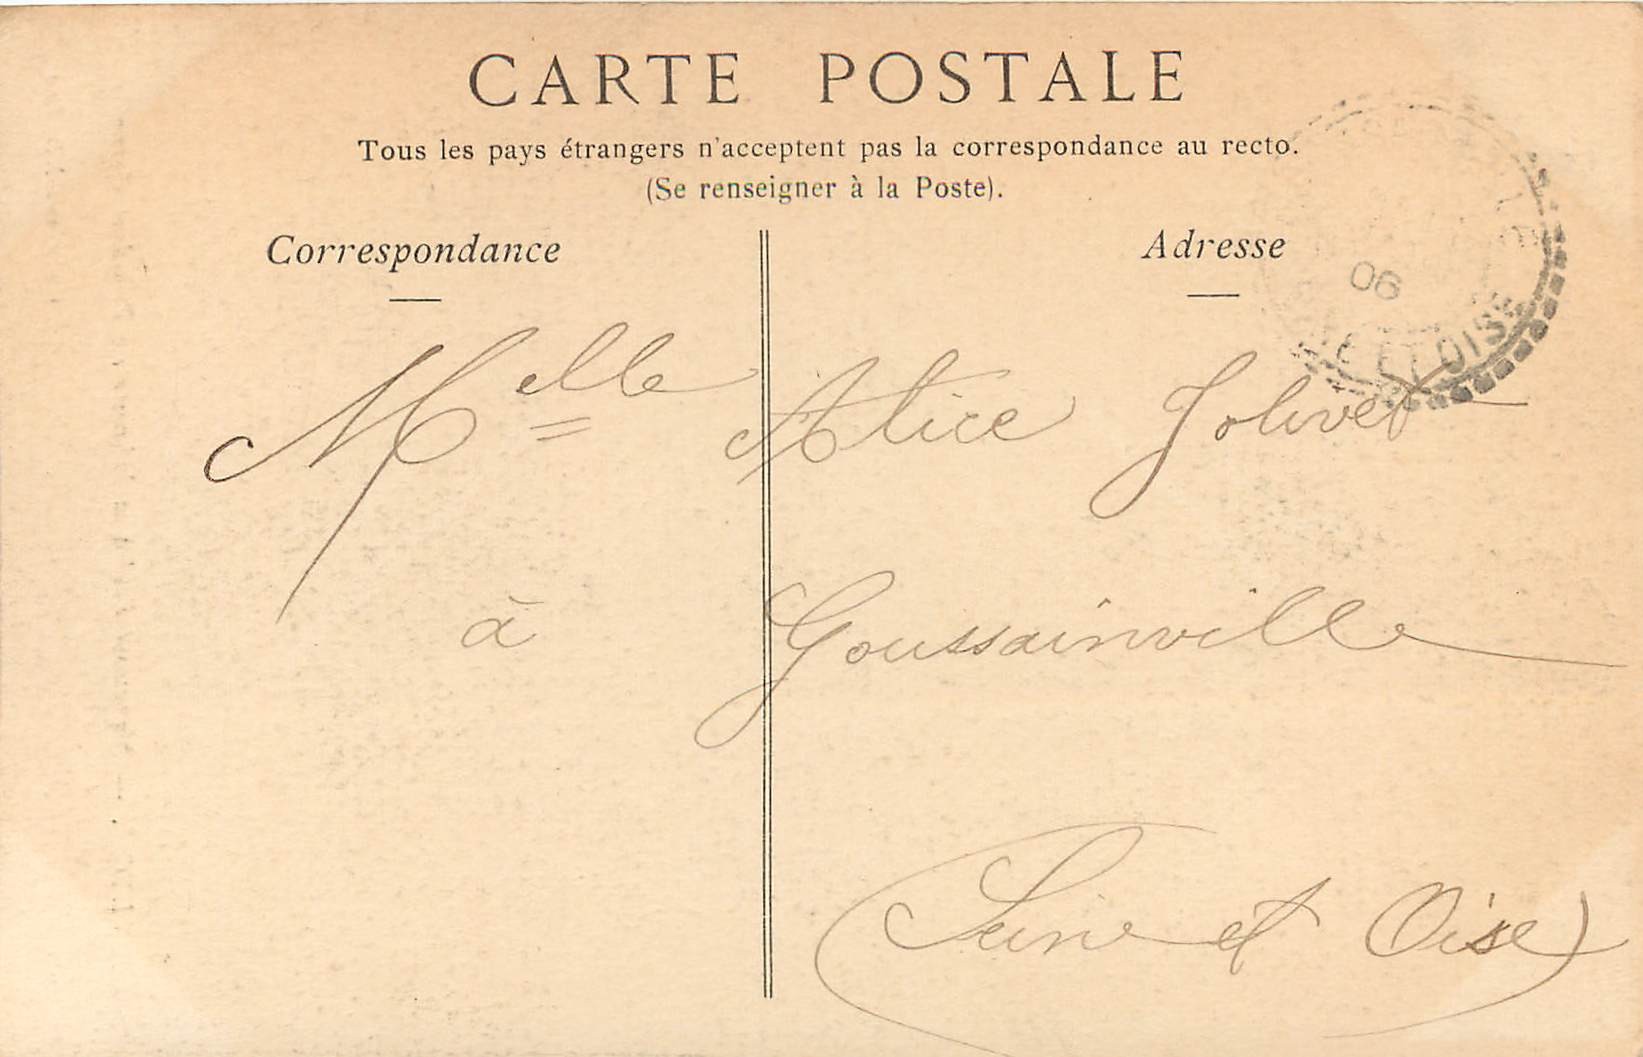 CARTE POSTALE
Tous les pays étrangers n'acceptent pas la correspondance au recto.
(Se renseigner à la Poste).
Correspondance
Adresse
06
ET OISE
Melle Alice Jolivet
à Goussainville
Seine et Oise